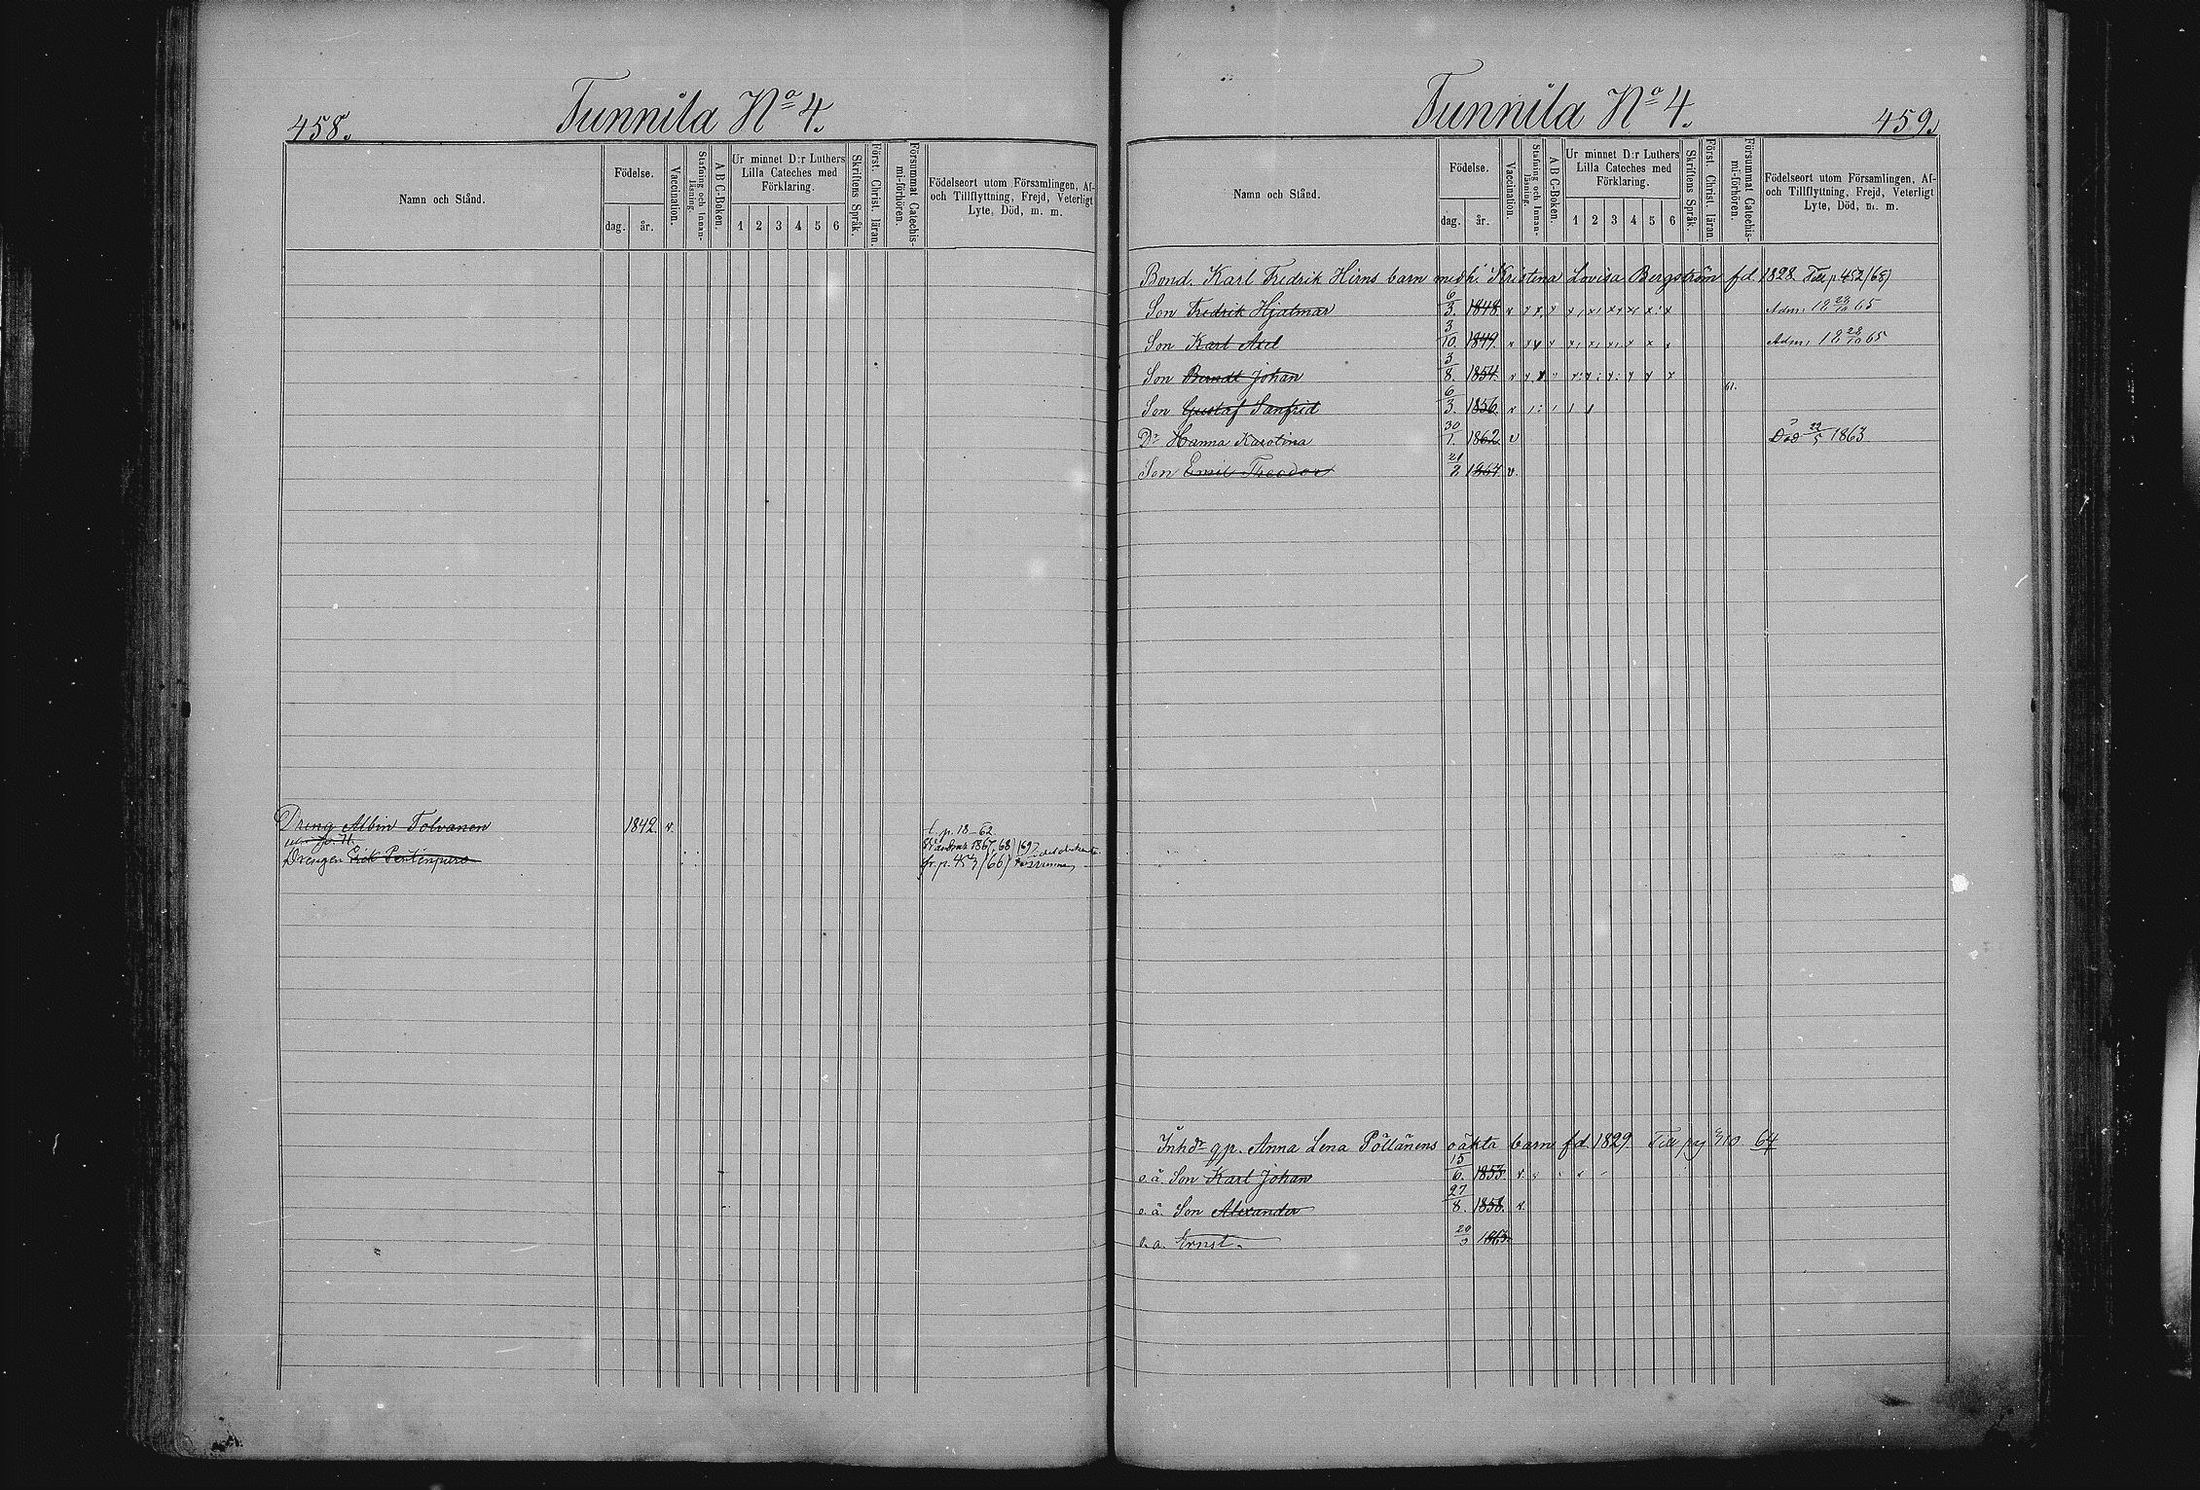 458.
Tunnila No 4.
Namn och Stånd.
Födelse.
dag.
år.
Vaccination.
Stafning och Innan-läsning.
A B C-Boken.
Ur minnet D:r Luthers
Lilla Cateches med
Förklaring.
1 2 3 4 5 6
Skriftens Språk.
Först. Christ. läran.
Försummat Catechis-mi-förhören.
Födelseort utom Församlingen, Af-
och Tillflyttning, Frejd, Veterligt
Lyte, Död, m. m.
Dreng Albin Tolvanen 1842. v. t. p. 18–62
Drengen Erik Penttinpuro fr. p. 457 (66)
Tunnila No 4.
459.
Namn och Stånd.
Födelse.
dag.
år.
Vaccination.
Stafning och Innan-läsning.
A B C-Boken.
Ur minnet D:r Luthers
Lilla Cateches med
Förklaring.
1 2 3 4 5 6
Skriftens Språk.
Först. Christ. läran.
Försummat Catechis-mi-förhören.
Födelseort utom Församlingen, Af-
och Tillflyttning, Frejd, Veterligt
Lyte, Död, m. m.
Bond. Karl Fredrik Hirns barn med h. Kristina Lovisa Bergström fd. 1828. Till p. 452/65)
Son Fredrik Hjalmar 6/3. 1848. Adm. 18 29/10 65
Son Karl Axel 3/10. 1849. Adm. 18 28/10 65
Son Berndt Johan 3/8. 1854.
61.
Son Gustaf Sanfrid 6/3. 1856.
Dr Hanna Karolina 30/1. 1862 v Död 22/5 1863
Son Emil Theodor 21/2 1864 v.
Inhdr qp. Anna Lena Pöllänens oäkta barn fd. 1829. Till pag 710 64
o. ä. Son Karl Johan 15/6. 1853. v.
o. ä. Son Alexander 27/8. 1858. v.
o. ä. Ernst. 20/3 1863.